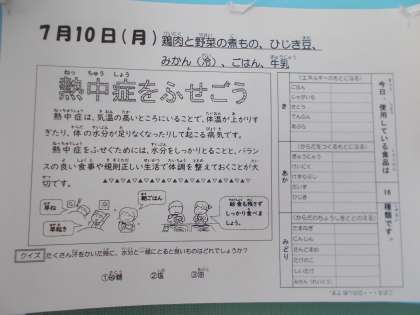 7月10日(月)鶏肉と野菜の煮もの、ひじき豆、
みかん(冷)、ごはん、牛乳
熱中症をふせごう
ねっ ちゅう しょう
熱中症は、気温の高いところにいることで、体温が上がりす
ぎたり、体の水分が足りなくなったりして起こる病気です。
熱中症をふせぐためには、水分をしっかりとることと、バラン
スの良い食事や規則正しい生活で体調を整えておくことが大
切です。
早ね
早起き
朝ごはん
給食も残さず
しっかり食べま
しょう。
クイズ たくさん汗をかいた時に、水分と一緒にとると良いものはどれでしょうか？
①砂糖 ②塩 ③油
今日、使用している食品は 16 種類です。
き
(エネルギーのもとになる)
ごはん
じゃがいも
さとう
でんぷん
あぶら
あか
(からだをつくるもとになる)
ぎゅうにゅう
けいにく
だいず
ひじき
みどり
(からだのちょうしをととのえる)
たまねぎ
にんじん
さんどまめ
たけのこ
しいたけ